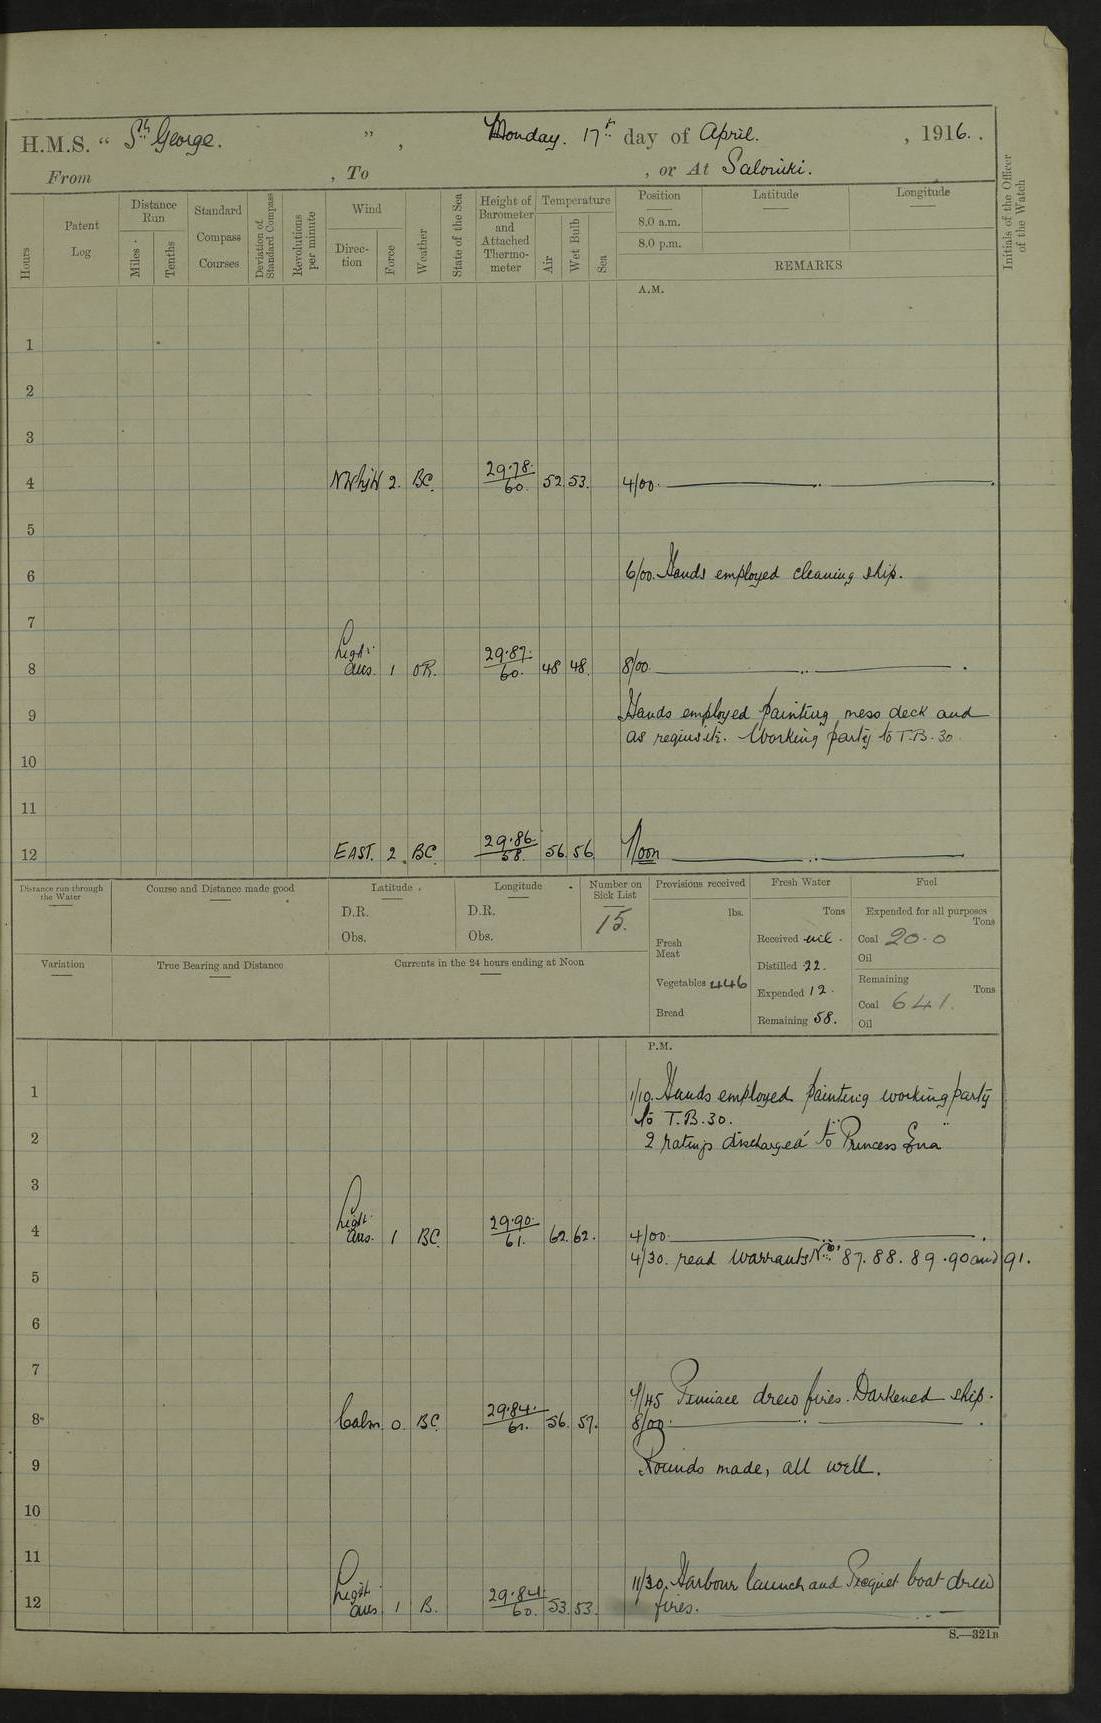 H.M.S. " St George. ", Monday. 17th day of April. , 1916.
From , To , or At Salonuki.
Hours
Patent Log
Distance Run
Miles
Tenths
Standard Compass Courses
Deviation of Standard Compass
Revolutions per minute
Wind
Direction
Force
Weather
State of the Sea
Height of Barometer and Attached Thermometer
Temperature
Air
Wet Bulb
Sea
Position
8.0 a.m.
8.0 p.m.
Latitude
Longitude
REMARKS
Initials of the Officer of the Watch
A.M.
1
2
3
4 NWbyW 2. BC. 29.78. 60. 52. 53. 4/00.
5
6 6/00. Hands employed cleaning ship.
7
8 Light airs. 1 OR. 29.87. 60. 48 48. 8/00
9 Hands employed painting mess deck and
as requisite. Working party to T.B. 30.
10
11
12 EAST. 2. BC. 29.86. 58. 56. 56. Noon
Distance run through the Water
Course and Distance made good
Latitude
D.R.
Obs.
Longitude
D.R.
Obs.
Number on Sick List
15.
Variation
True Bearing and Distance
Currents in the 24 hours ending at Noon
Provisions received
lbs.
Fresh Meat
Vegetables 446
Bread
Fresh Water
Tons
Received nil.
Distilled 22.
Expended 12.
Remaining 58.
Fuel
Expended for all purposes
Tons
Coal 20.0
Oil
Remaining
Tons
Coal 641.
Oil
P.M.
1 1/10. Hands employed painting working party
to T.B. 30.
2 2 ratings discharged to "Princess Ena"
3
4 Light airs. 1 BC. 29.90. 61. 62. 62. 4/00.
4/30. read Warrants Nos. 87. 88. 89. 90 and 91.
5
6
7
7/45 Pinnace drew fires. Darkened ship.
8 Calm. 0. BC. 29.84. 61. 56. 57. 8/00.
9 Rounds made, all well.
10
11
11/30. Harbour launch and Picquet boat drew
12 Light airs 1 B. 29.84. 60. 53. 53. fires.
S.—321B